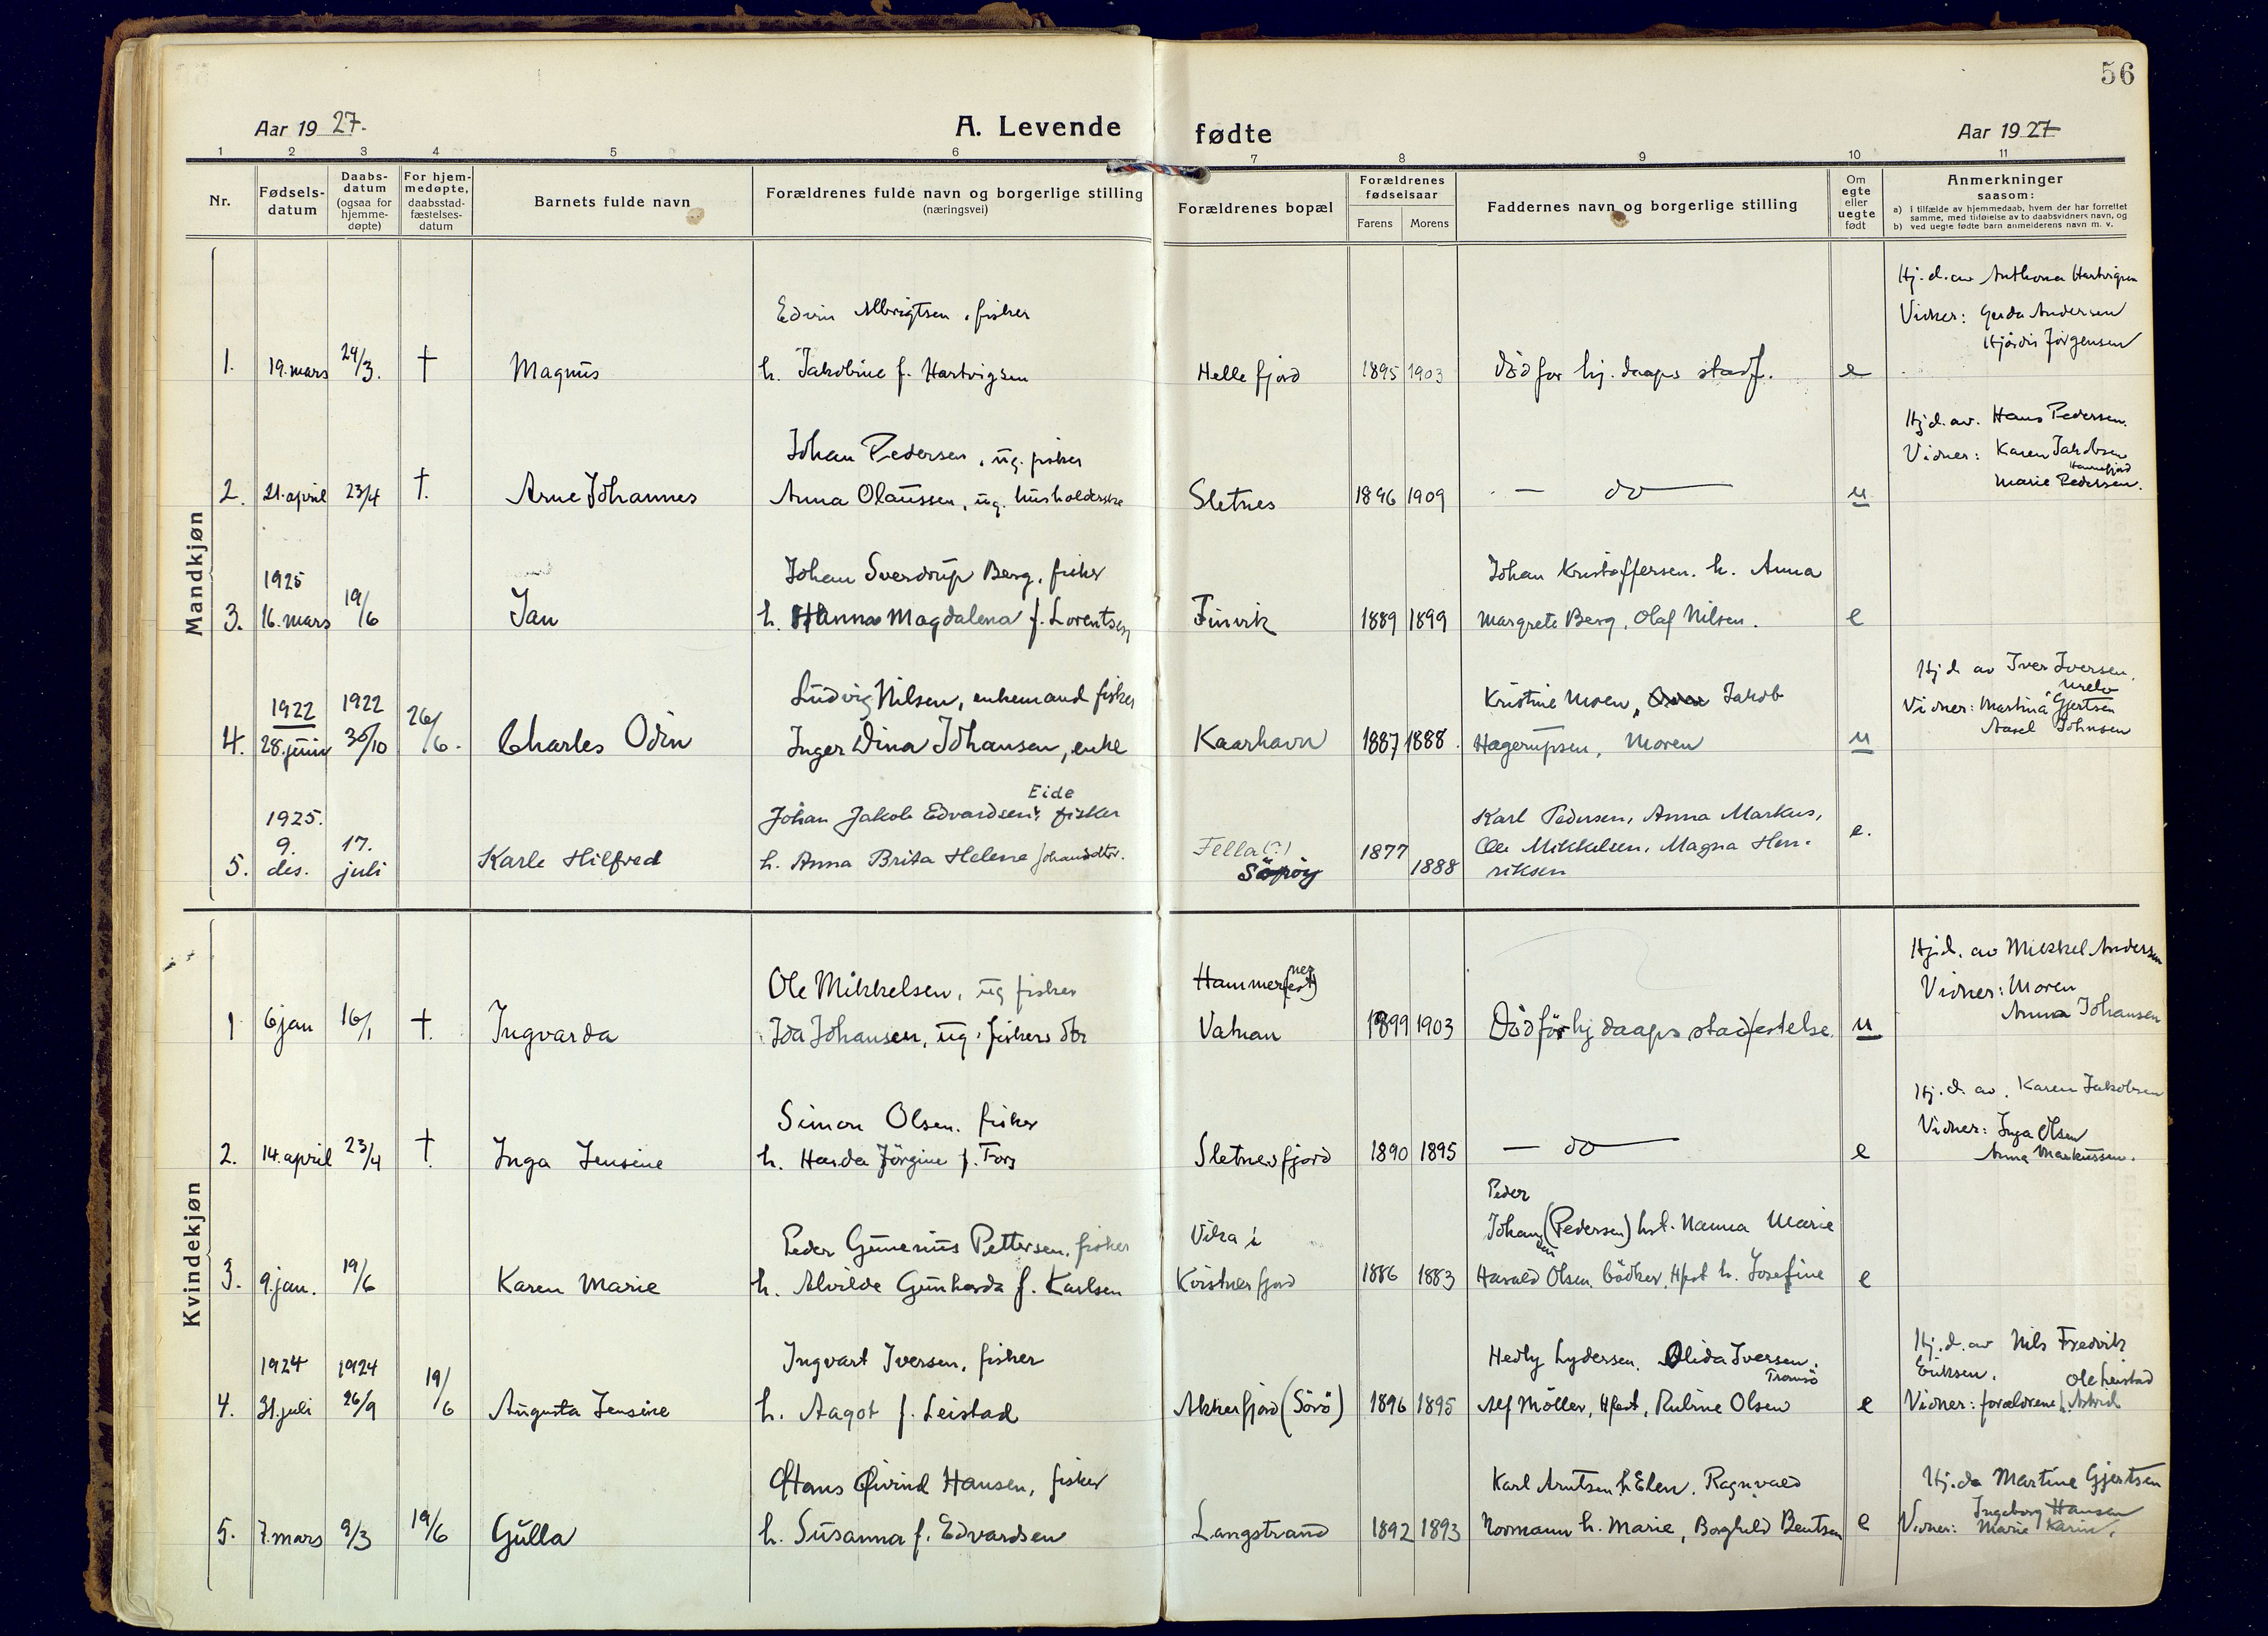 56
Aar 1927.
A. Levende fødte
Aar 1927
1 2 3 4 5 6 7 8 9 10 11
Nr.
Fødsels-
datum
Daabs-
datum
(ogsaa for
hjemme-
døpte)
For hjem-
medøpte,
daabsstad-
fæstelses-
datum
Barnets fulde navn
Forældrenes fulde navn og borgerlige stilling
(næringsvei)
Forældrenes bopæl
Forældrenes
fødselsaar
Farens Morens
Faddernes navn og borgerlige stilling
Om
egte
eller
uegte
født
Anmerkninger
saasom:
a) i tilfælde av hjemmedaab, hvem der har forrettet
samme, med tilføielse av to daabsvidners navn, og
b) ved uegte fødte barn anmelderens navn m. v.
Mandkjøn
Hj. d. av Anthona Hartvigsen
Edvin Albrigtsen, fisker
Vidner: Gerda Andersen
Hjørdis Jørgensen
1. 19. mars 24/3. † Magnus h. Jakobine f. Hartvigsen Hellefjord 1895 1903 död for hj. daaps stadf. e
Hj. d. av. Hans Pedersen.
Johan Pedersen, ug. fisker
Vidner: Karen Jakobsen
Hannefjord
Marie Pedersen.
2. 21. april 23/4 †. Arne Johannes Anna Olaussen, ug. husholderske Sletnes 1896 1909 — do — u
1925
Johan Sverdrup Berg, fisker
Johan Kristoffersen. h. Anna
3. 16. mars 19/6 Jan h. Hanna Magdalena f. Lorentsen Finvik 1889 1899 Margrete Berg, Olaf Nilsen. e
Hj. d. av Iver Iversen,
1922 1922
Ludvig Nilsen, enkemand fisker
Kristine Moen, Jakob
Vidner: Martina Gjertsen
Aasel Johnsen
4. 28. juni 30/10 26/6. Charles Odin Inger Dina Johansen, enke Kaarhavn 1887 1888. Hagerupsen, Moren u
1925.
Eide
Johan Jakob Edvardsen, fisker
Karl Pedersen, Anna Markus,
5. 9. des. 17. juli Karle Hilfred h. Anna Brita Helene Johansdtr. Fella (?) 1877 1888 Ole Mikkelsen, Magna Hen- e.
Söröy
riksen
Kvindekjøn
Hj. d. av Mikkel Andersen
Ole Mikkelsen, ug fisker
Hammer(fest) (nes)
Vidner: Moren
Anna Johansen
1 6 jan 16/1 †. Ingvarda Ida Johansen, ug. fiskers dtr Vatnan 1899 1903 Död för hj daaps stadfestelse. u
Hj. d. av. Karen Jakobsen
Simon Olsen. fisker
Vidner: Inga Olsen
Anna Markussen.
2. 14. april 23/4 †. Inga Jensine h. Harda Jörgine f. Fors Sletnesfjord 1890 1895 — do — e
Peder
Peder Gunerius Pettersen, fisker
Vika i
Johansen (Pedersen) hst. Nanna Marie
3. 9. jan. 19/6 Karen Marie h. Alvilde Gunharda f. Karlsen Kvistnesfjord 1886 1883 Harald Olsen, bödker, Hfest h. Josefine e
1924 1924
Ingvart Iversen, fisker
Hedly Lydersen. Olida Iversen.
Tromsö
Hj. d. av Nils Fredrik
Eriksen.
Ole Leistad
4. 31. juli 26/9 19/6 Augusta Jensine h. Aagot f. Leistad Akkerfjord (Sörö) 1896 1895 Alf Möller, Hfest, Rubine Olsen e Vidner: forældrene, h. Astrid
Hans Øivind Hansen, fisker
Karl Arntsen h. Elen. Ragnvald
Hj. da Martine Gjertsen
Ingeborg Hansen
5. 7. mars 9/3 19/6 Gulla h. Susanna f. Edvardsen Langstrand 1892 1893 Normann h. Marie, Borghild Bentsen e Vidner: Marie Karin.